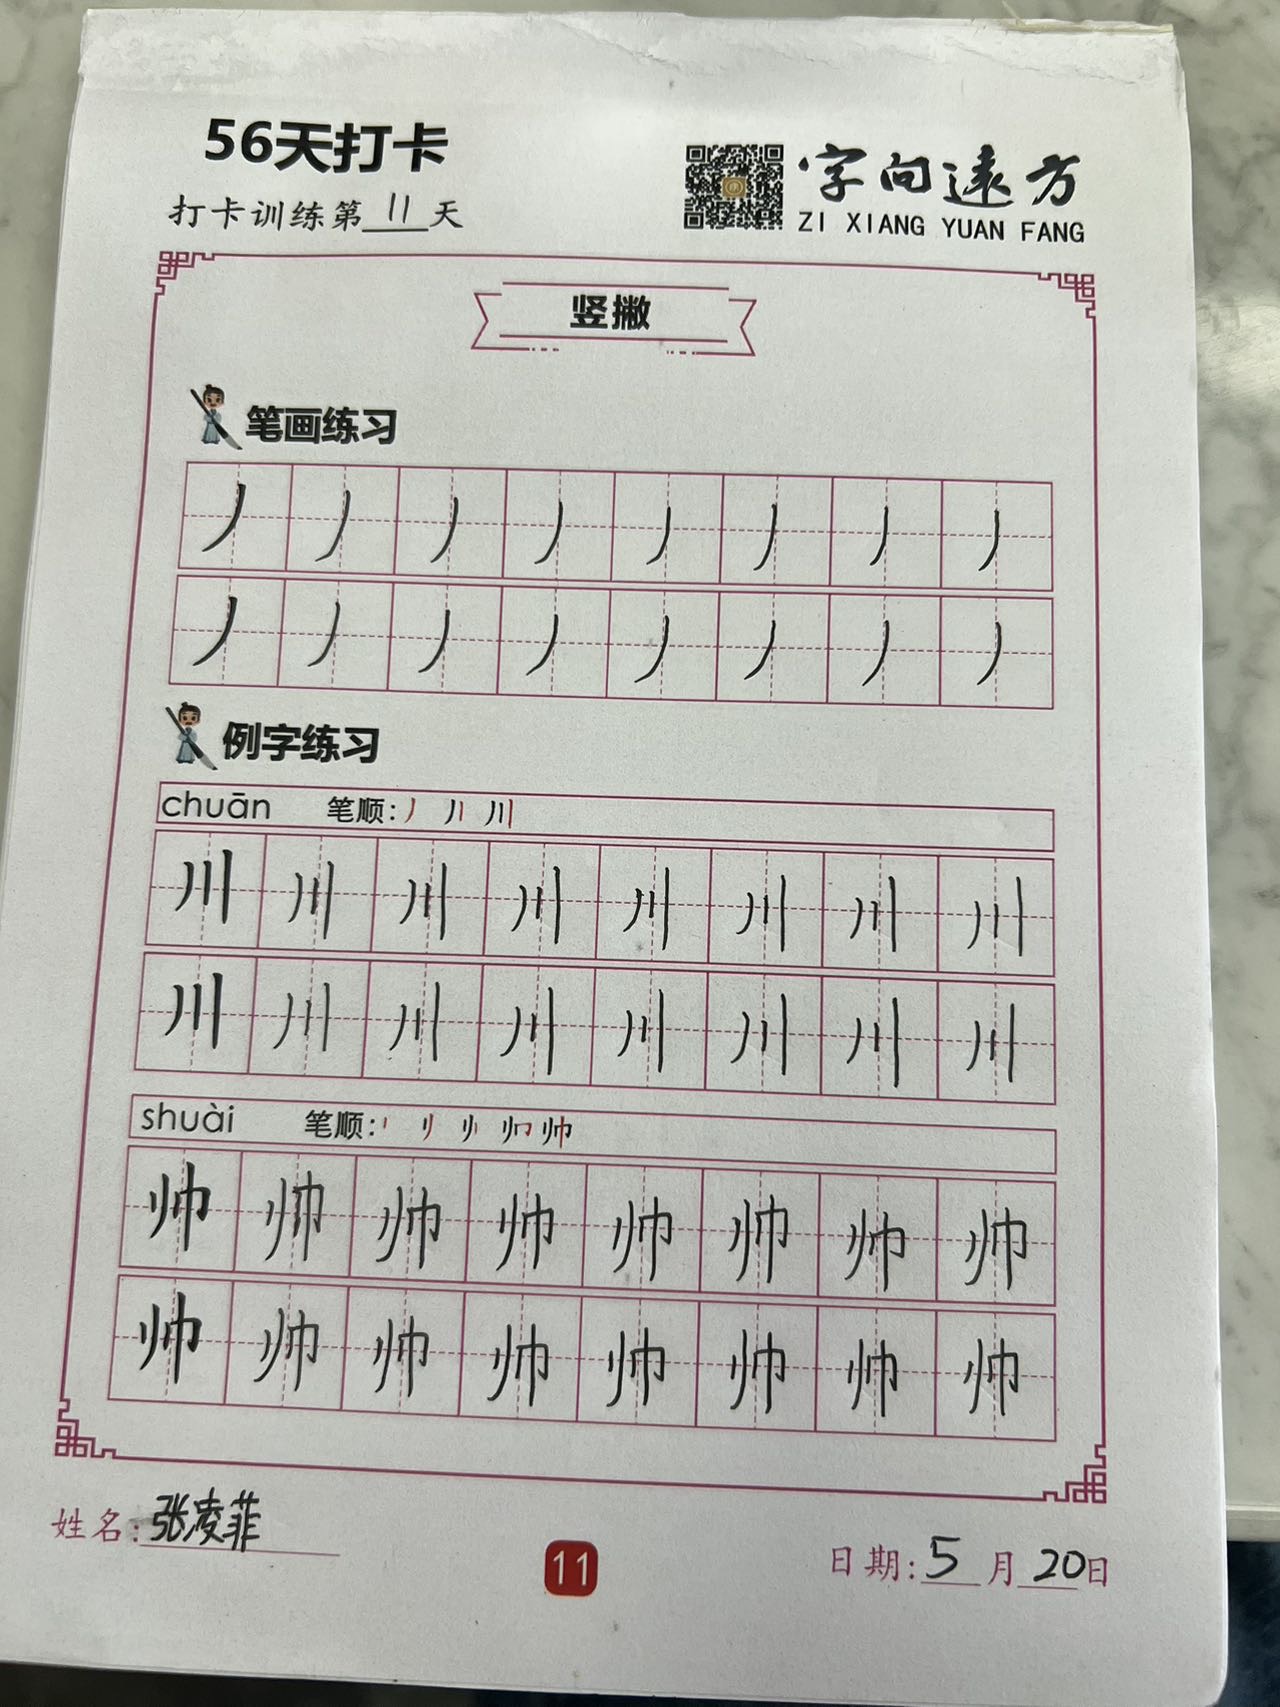 56天打卡
打卡训练第 11 天
字向远方
ZI XIANG YUAN FANG
竖撇
笔画练习
丿 丿 丿 丿 丿 丿 丿 丿
丿 丿 丿 丿 丿 丿 丿 丿
例字练习
chuān 笔顺: 丿 丿丨 川
川 川 川 川 川 川 川 川
川 川 川 川 川 川 川 川
shuài 笔顺: 帅
帅 帅 帅 帅 帅 帅 帅 帅
帅 帅 帅 帅 帅 帅 帅 帅
姓名: 张凌菲
11
日期: 5 月 20 日